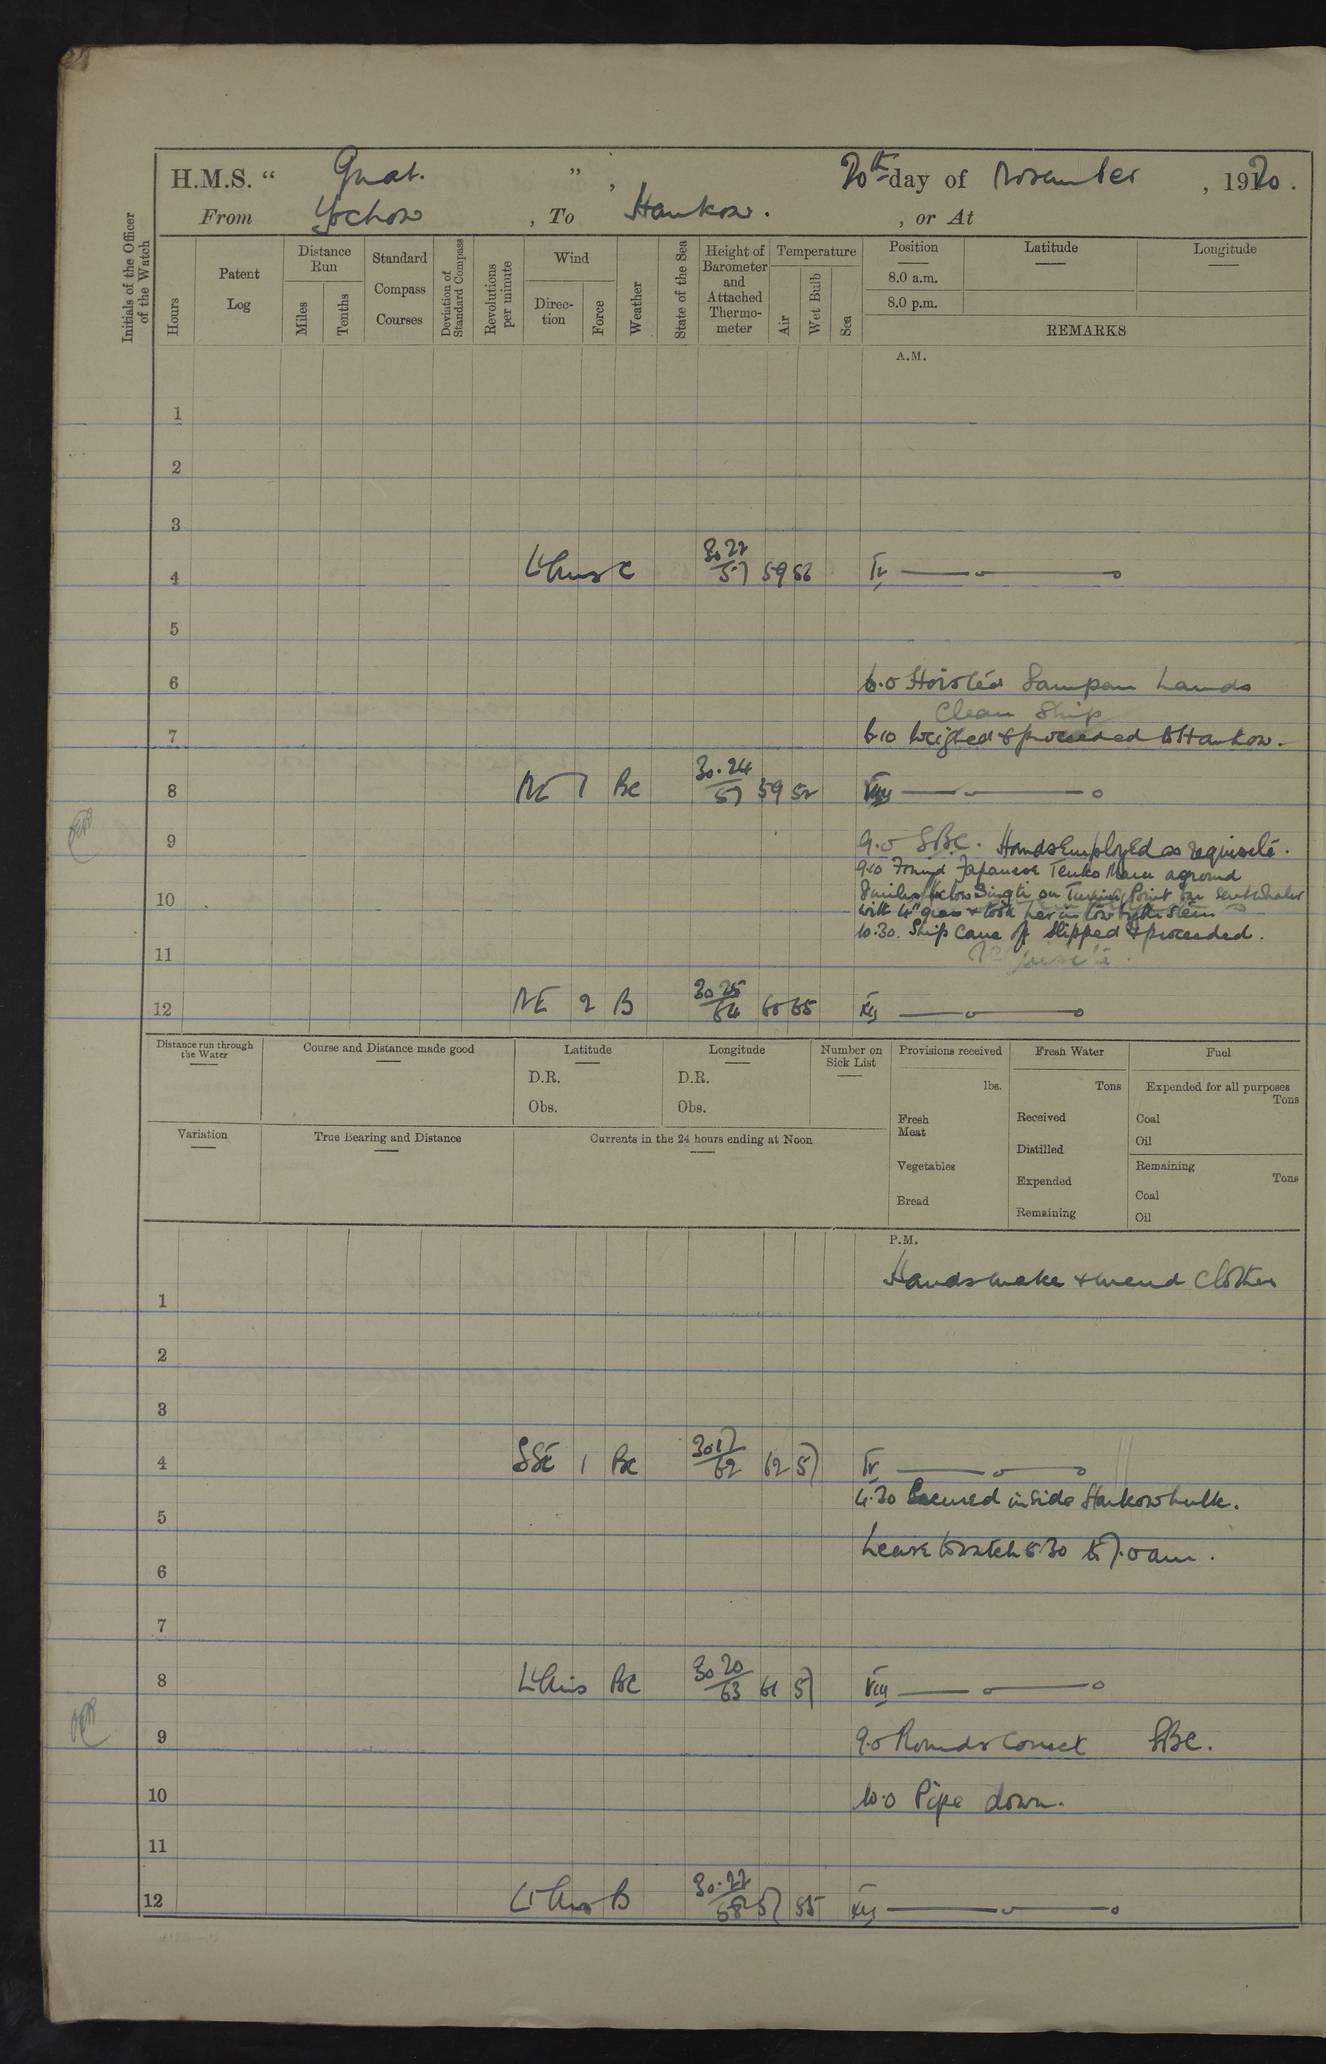 H.M.S. " Gnat. " , 20th day of November , 1920 .
From Yochow , To Hankow . , or At
Initials of the Officer of the Watch
Hours
Patent Log
Distance Run
Miles
Tenths
Standard Compass Courses
Deviation of Standard Compass
Revolutions per minute
Wind
Direction
Force
Weather
State of the Sea
Height of Barometer and Attached Thermometer
Temperature
Air
Wet Bulb
Sea
Position
8.0 a.m.
8.0 p.m.
Latitude
Longitude
REMARKS
A.M.
1
2
3
4 Lt Airs C 30 22 57 59 56 IV
5
6 6.0 Hoisted Sampan Hands
Clean Ship
7 6.10 Weighed & proceeded to Hankow.
8 NE 1 BC 30.24 57 59 52 VIII
9 9.0 SBC. Hands Employed as requisite.
9.10 Found Japanese Tenko Maru aground
10 8 miles below Singti on Turning Point sent whaler
with 4" grass & took her in tow by the stern
10.30. Ship came off slipped & proceeded.
11 requisite.
12 NE 2 B 30 25 64 60 55 XII
Distance run through the Water
Course and Distance made good
Latitude
D.R.
Obs.
Longitude
D.R.
Obs.
Number on Sick List
Provisions received
lbs.
Fresh Meat
Vegetables
Bread
Fresh Water
Tons
Received
Distilled
Expended
Remaining
Fuel
Expended for all purposes
Tons
Coal
Oil
Remaining
Tons
Coal
Oil
Variation
True Bearing and Distance
Currents in the 24 hours ending at Noon
P.M.
Hands make & mend Clothes
1
2
3
4 SSE 1 BC 30 17 62 62 57 IV
4.30 Secured inside Hankow hulk.
5
Leave to watch 5.30 to 7.0 am.
6
7
8 Lt Airs BC 30 20 63 61 57 VIII
9 9.0 Rounds Correct SBC.
10 10.0 Pipe down.
11
12 Lt Airs B 30.22 58 57 55 XII